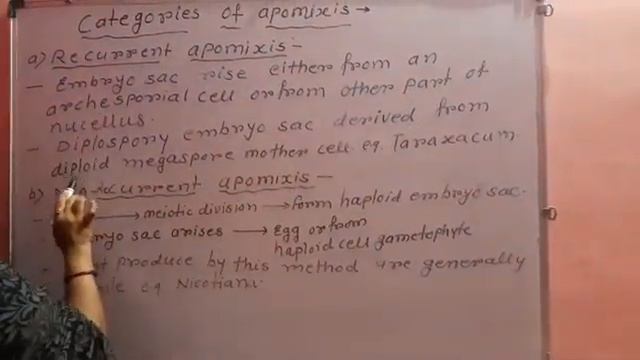 Categories of apomixis →
a) Recurrent apomixis :-
- Embryo sac rise either from an
archesporial cell or from other part of
nucellus.
- Diplospory embryo sac derived from
diploid megaspore mother cell. eg. Taraxacum.
b) current apomixis -
- → meiotic division → form haploid embryo sac.
sac arises → Egg or from
haploid cell gametophyte
produce by this method are generally
eg Nicotiana.